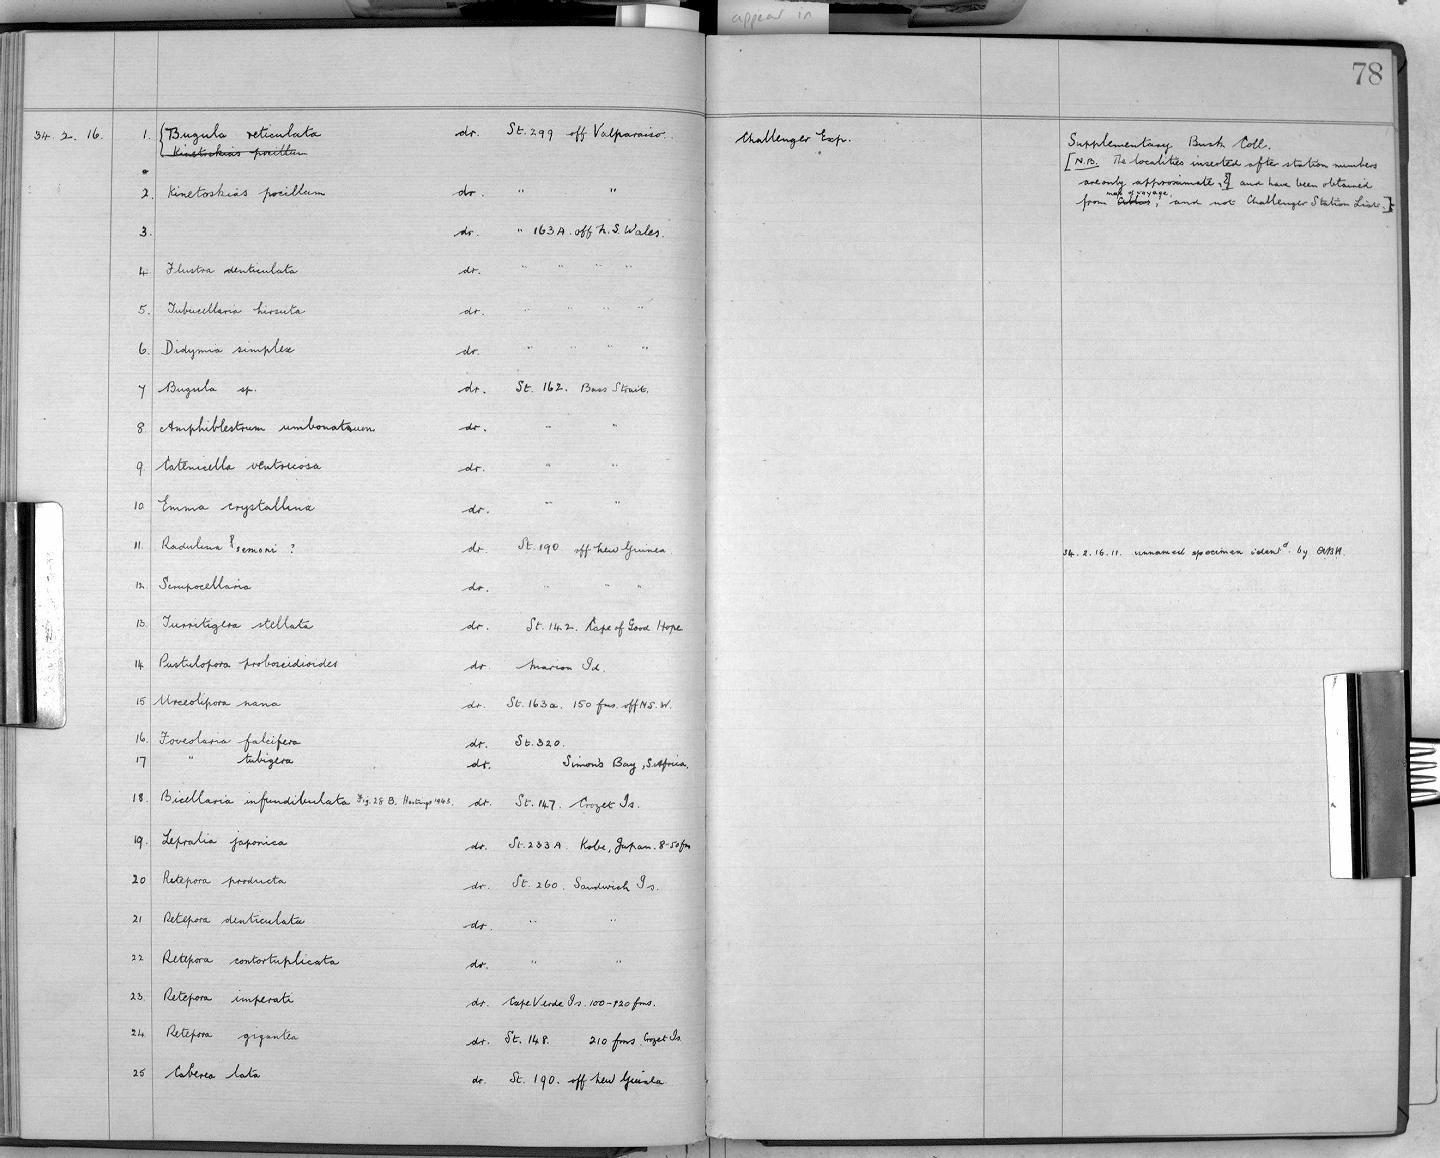 appear in
78
34. 2. 16. 1. Bugula reticulata dr. St. 299 off Valparaiso. Challenger Exp. Supplementary Busk Coll.
Kinetoskias pocillum
[N.B. The localities inserted after station numbers
are only approximate, and have been obtained
map of voyage,
from, and not Challenger Station List.]
2. Kinetoskias pocillum dr. " "
3. dr. " 163A. off N.S. Wales.
4 Flustra denticulata dr. " " " "
5. Tubucellaria hirsuta dr. " " " "
6. Didymia simplex dr. " " " "
7 Bugula sp. dr. St. 162. Bass Strait.
8 Amphiblestrum umbonatum dr. " "
9 Catenicella ventricosa dr. " "
10 Emma crystallina dr. " "
11. Radulina semoni ? dr. St. 190 off New Guinea 34. 2. 16. 11. unnamed specimen identd. by ABH.
12 Scrupocellaria dr. " " "
13. Turritigera stellata dr. St. 142. Cape of Good Hope
14 Pustulopora proboscidioides dr Marion Id.
15 Urceolipora nana dr. St. 163a. 150 fms. off N.S.W.
16. Foveolaria falcifera dr. St. 320.
17 " tubigera dr. Simons Bay, S. Africa.
18. Bicellaria infundibulata Fig. 28 B. Hastings 1943. dr. St. 147. Crozet Is.
19. Lepralia japonica dr. St. 233A. Kobe, Japan. 8-50 fm
20 Retepora producta dr. St. 260. Sandwich Is.
21 Retepora denticulata dr. " "
22 Retepora contortuplicata dr. " "
23. Retepora imperati dr. Cape Verde Is. 100-120 fms.
24 Retepora gigantea dr. St. 148. 210 fms. Crozet Is.
25 Caberea lata dr. St. 190. off New Guinea